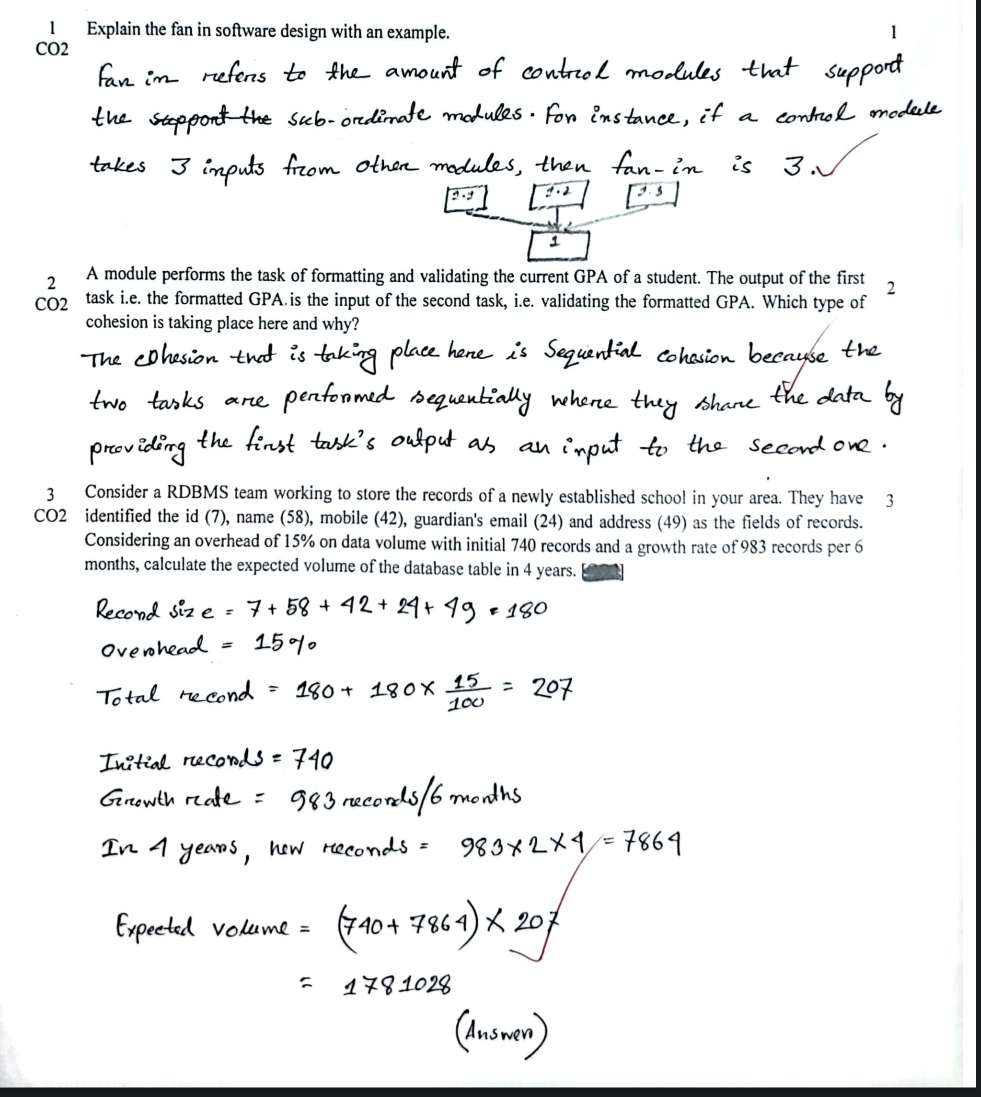 1 Explain the fan in software design with an example. 1
CO2
fan in refers to the amount of control modules that support
the support the sub-ordinate modules. For instance, if a control module
takes 3 inputs from other modules, then fan-in is 3.
1.1 1.2 1.3
1
2 A module performs the task of formatting and validating the current GPA of a student. The output of the first 2
CO2 task i.e. the formatted GPA. is the input of the second task, i.e. validating the formatted GPA. Which type of
cohesion is taking place here and why?
The cohesion that is taking place here is Sequential cohesion because the
two tasks are performed sequentially where they share the data by
providing the first task's output as an input to the second one.
3 Consider a RDBMS team working to store the records of a newly established school in your area. They have 3
CO2 identified the id (7), name (58), mobile (42), guardian's email (24) and address (49) as the fields of records.
Considering an overhead of 15% on data volume with initial 740 records and a growth rate of 983 records per 6
months, calculate the expected volume of the database table in 4 years.
Record size = 7 + 58 + 42 + 24 + 49 = 180
Overhead = 15%
Total record = 180 + 180 × 15/100 = 207
Initial records = 740
Growth rate = 983 records/6 months
In 4 years, new records = 983×2×4 = 7864
Expected volume = (740 + 7864) × 207
= 1781028
(Answer)